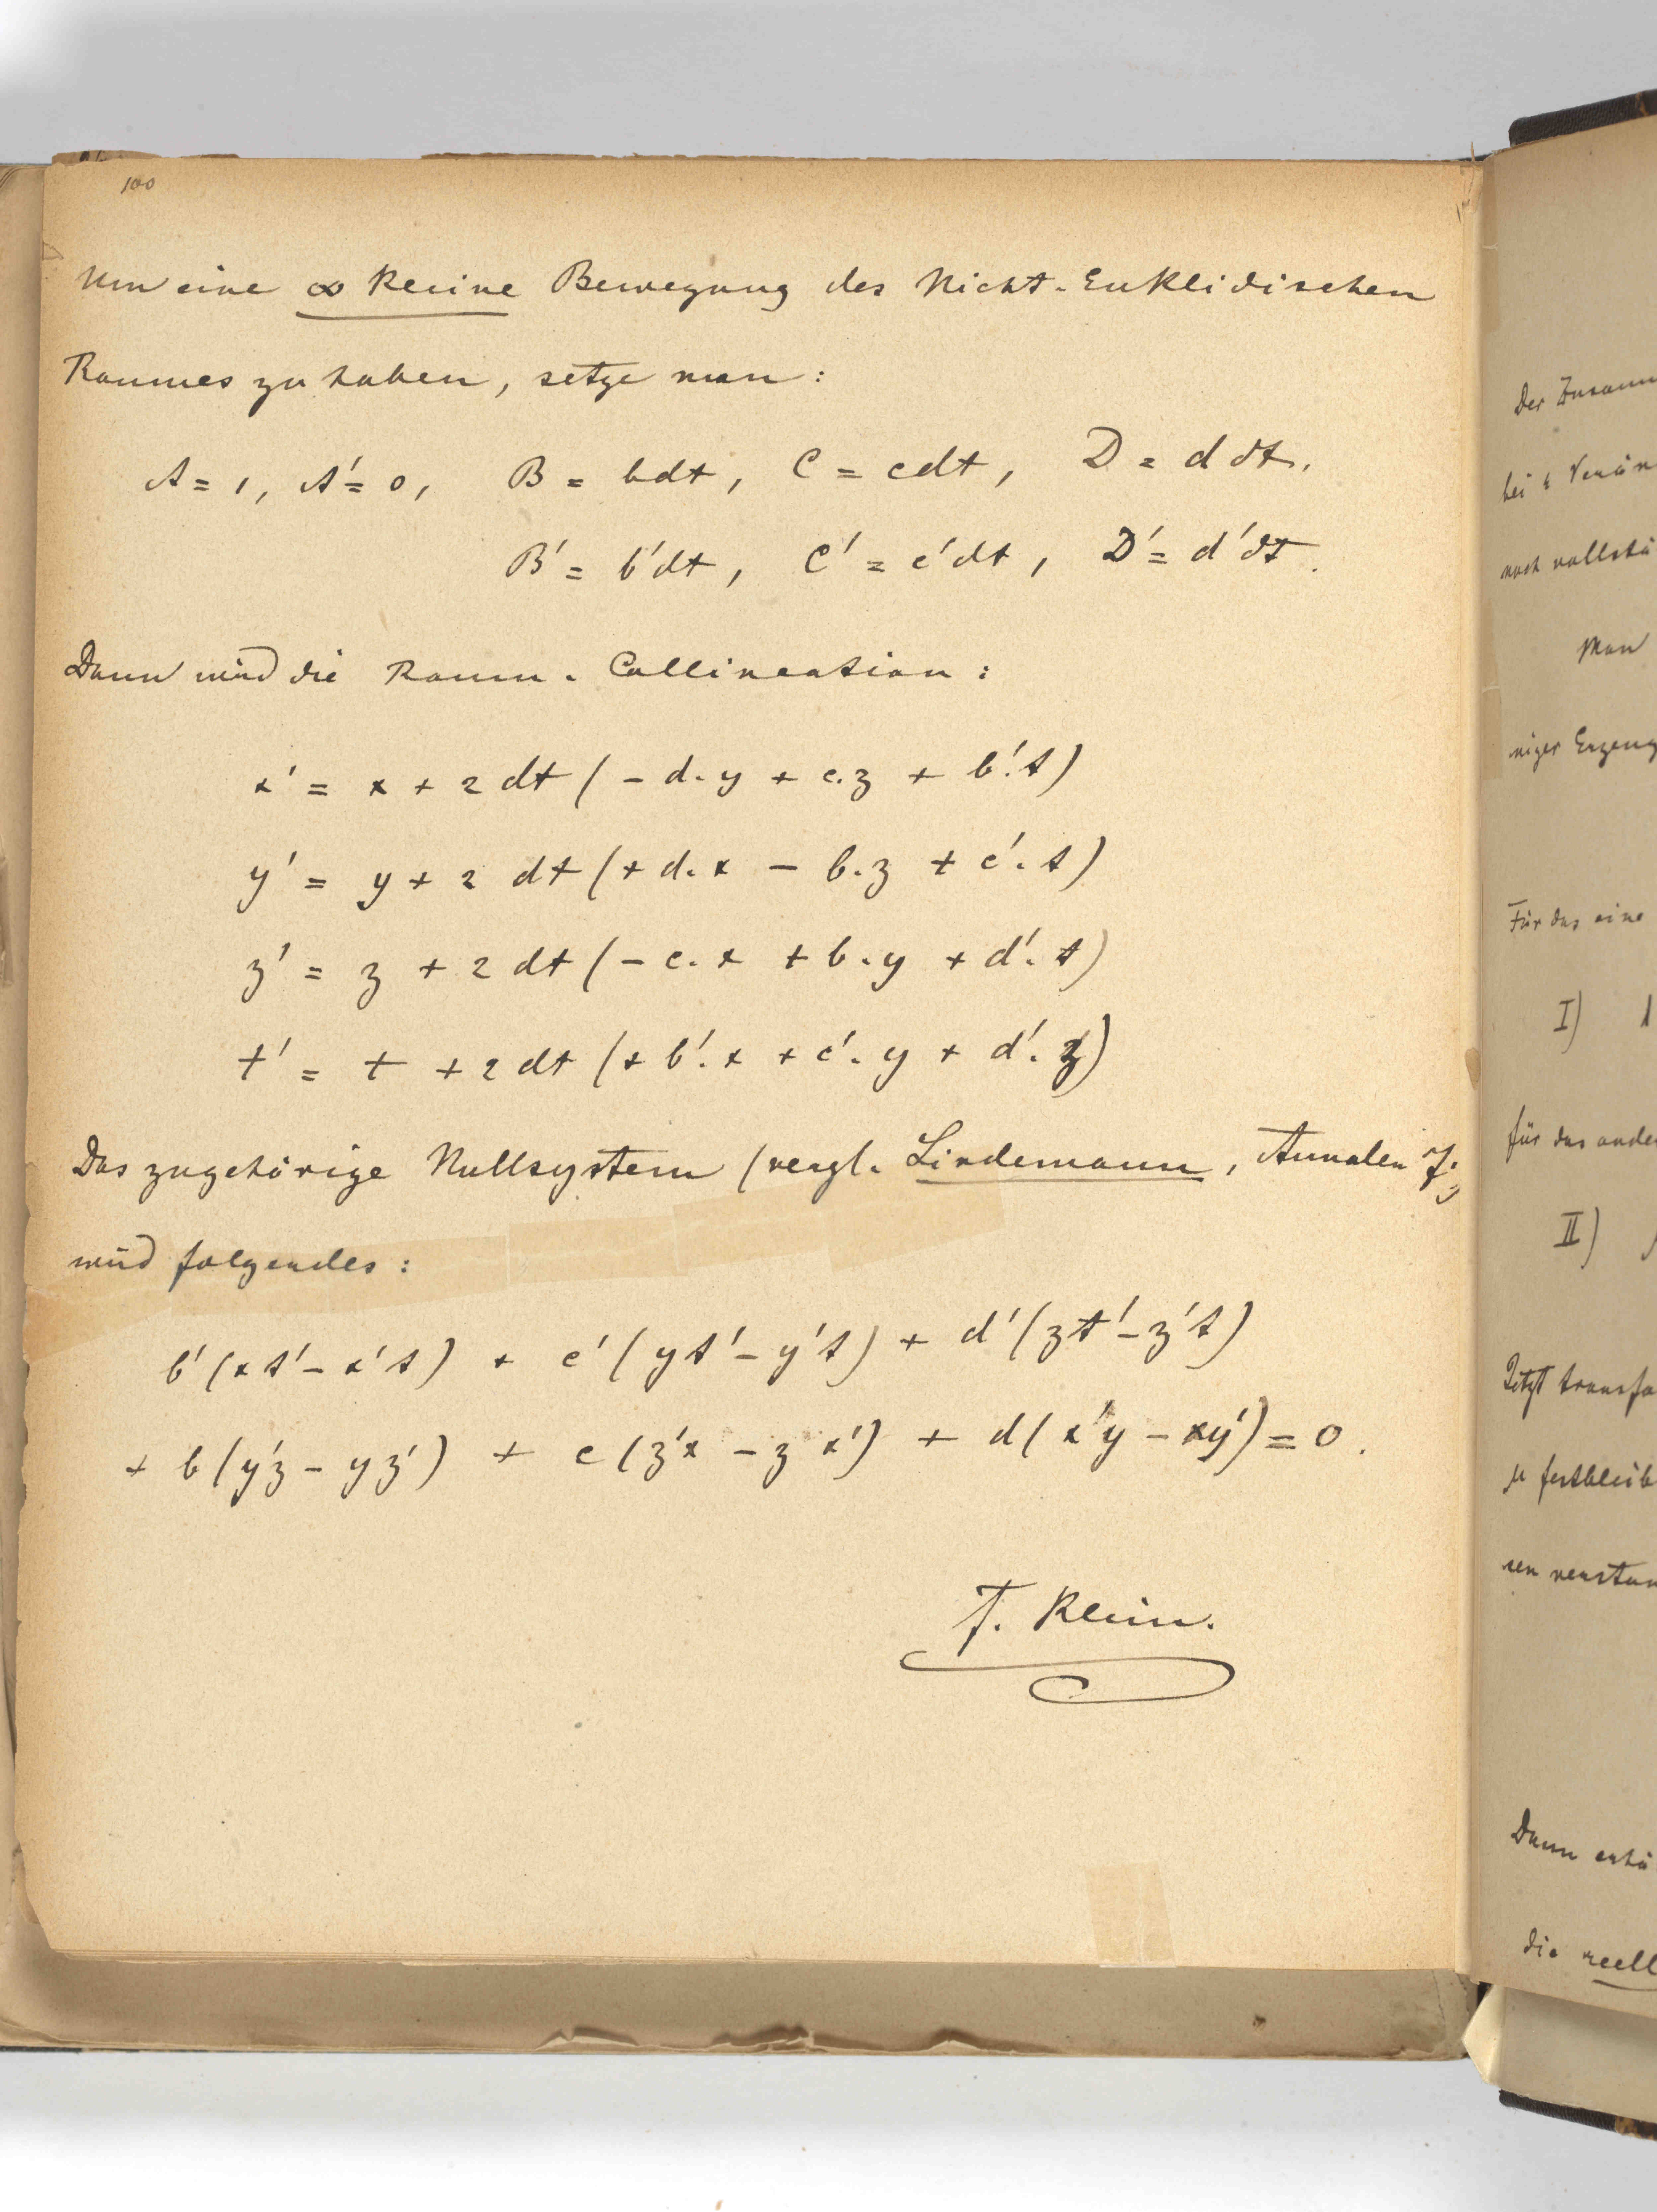 100
Um eine ∞ kleine Bewegung des Nicht-Euklidischen
Raumes zu haben, setze man:
A = 1, A' = 0, B = bdt, C = cdt, D = d dt.
B' = b'dt, C' = c'dt, D' = d'dt.
Dann wird die Raum-Collineation:
x' = x + 2 dt (- d.y + c.z + b'.t)
y' = y + 2 dt (+ d.x - b.z + c'.t)
z' = z + 2 dt (- c.x + b.y + d'.t)
t' = t + 2 dt (+ b'.x + c'.y + d'.z)
Das zugehörige Nullsystem (vergl. Lindemann, Annalen 7)
wird folgendes:
b'(xt' - x't) + c'(yt' - y't) + d'(zt' - z't)
+ b(y'z - yz') + c(z'x - zx') + d(x'y - xy') = 0.
F. Klein.
Der
bei
noch
Man
niger
Für das eine
I)
für das
II)
Jetzt
Dann
die